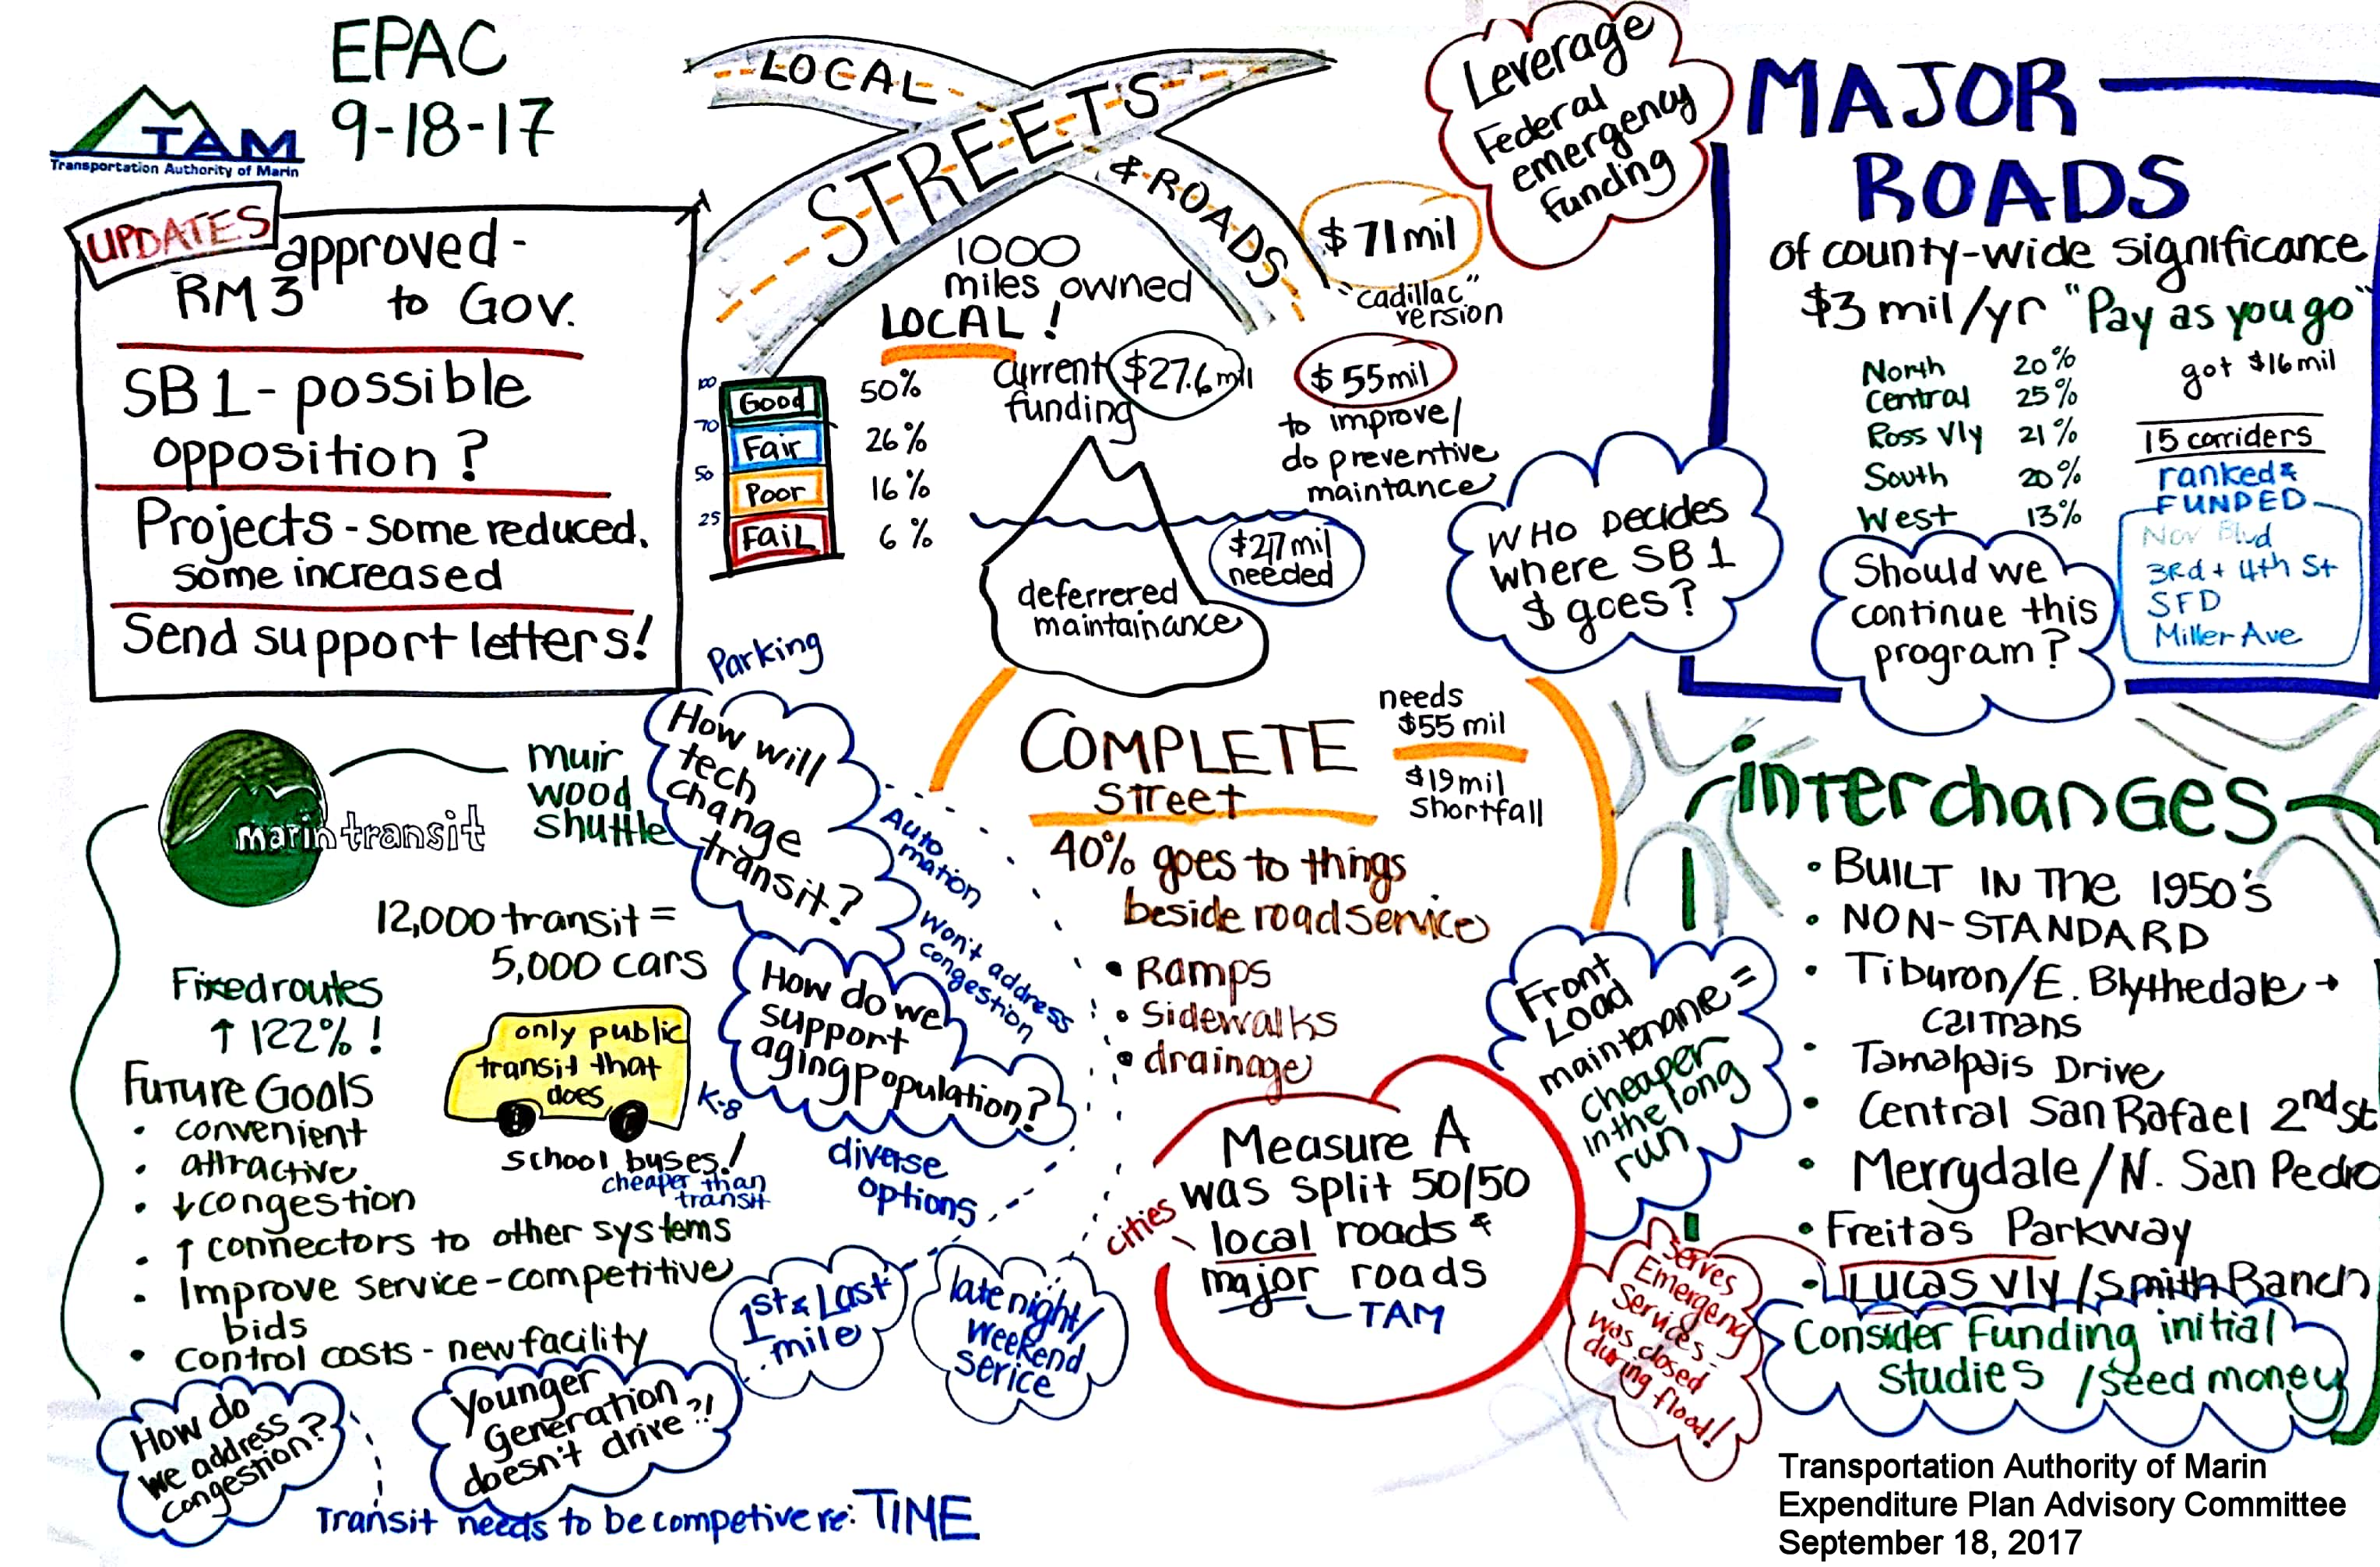 EPAC
9-18-17
TAM
Transportation Authority of Marin
UPDATES
approved -
RM3 to Gov.
SB 1 - possible
opposition?
Projects - some reduced.
some increased
Send support letters!
LOCAL
STREETS
& ROADS
1000
miles owned
LOCAL!
100
Good 50%
70
Fair 26%
50
Poor 16%
25
Fail 6%
current $27.6 mil
funding
$71 mil
"cadillac"
version
$55 mil
to improve/
do preventive
maintance
$217 mil
needed
deferrered
maintainance
Leverage
Federal
emergency
funding
WHO Decides
where SB 1
$ goes?
MAJOR
ROADS
of county-wide significance
$3 mil/yr "Pay as you go"
North 20%
Central 25%
Ross Vly 21%
South 20%
West 13%
got $16 mil
15 corriders
ranked &
FUNDED
Nov Blvd
3rd + 4th St
SFD
Miller Ave
Should we
continue this
program?
marin transit
muir
wood
shuttle
12,000 transit =
5,000 cars
Fixed routes
↑ 122%!
Future Goals
• convenient
• attractive
• ↓ congestion
• ↑ connectors to other systems
• Improve service - competitive
bids
• control costs - new facility
only public
transit that
does
K-8
school buses!
cheaper than
transit
Parking
How will
tech
change
transit?
Auto
mation
Won't address
congestion
How do we
support
aging population?
diverse
options
1st & Last
mile
late night/
weekend
serice
How do
we address
congestion?
Younger
Generation
doesn't drive?!
Transit needs to be competive re: TIME
COMPLETE
Street
needs
$55 mil
$19 mil
shortfall
40% goes to things
beside road service
• Ramps
• Sidewalks
• drainage
Measure A
was split 50/50
cities
local roads &
major roads
TAM
Front
Load
maintenance =
cheaper
in the long
run
interchanges
• BUILT IN The 1950's
• NON-STANDARD
• Tiburon/E. Blythedale →
Caltrans
• Tamalpais Drive
• Central San Rafael 2nd St
• Merrydale/N. San Pedro
• Freitas Parkway
• Lucas Vly/Smith Ranch
Serves
Emergency
Services -
was closed
during flood!
Consider Funding initial
studies /seed money
Transportation Authority of Marin
Expenditure Plan Advisory Committee
September 18, 2017